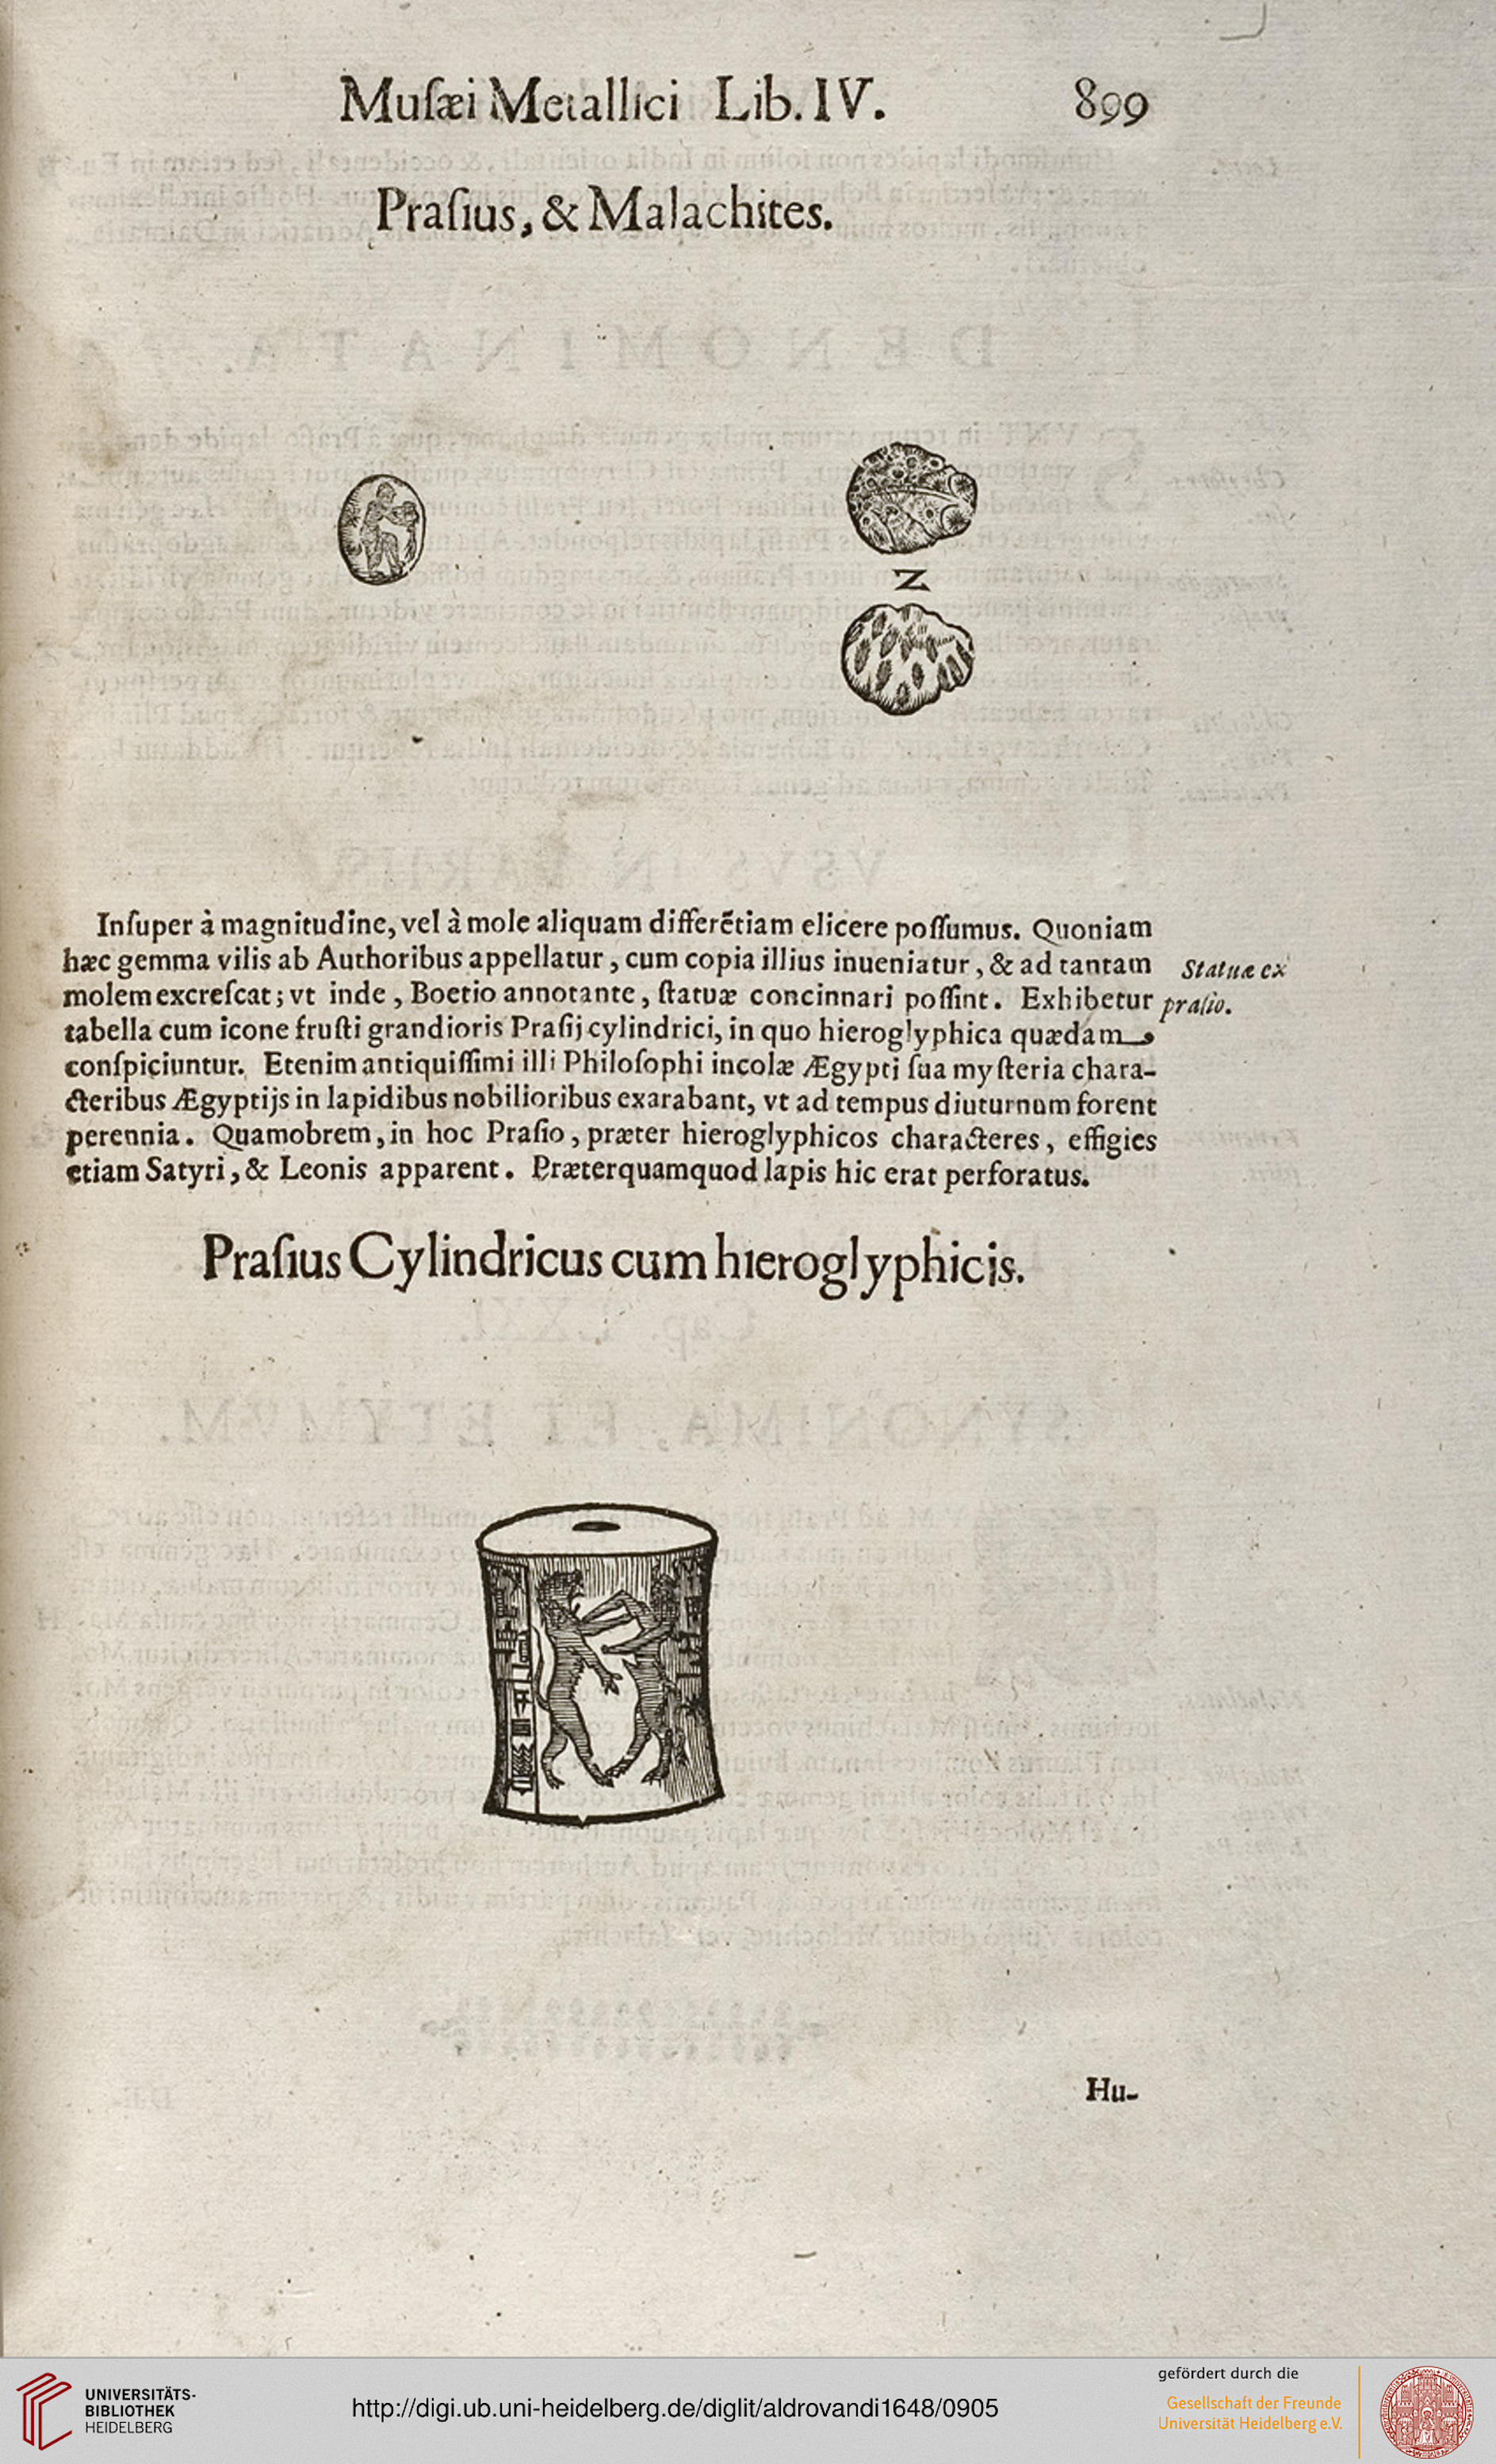 Muſæi Metallici Lib. IV. 899
Praſius, & Malachites.
2
Inſuper à magnitudine, vel à mole aliquam differẽtiam elicere poſſumus. Quoniam
hæc gemma vilis ab Authoribus appellatur, cum copia illius inueniatur, & ad tantam
Statuæ ex
molem excreſcat; vt inde, Boetio annotante, ſtatuæ concinnari poſſint. Exhibetur
praſio.
tabella cum icone fruſti grandioris Praſij cylindrici, in quo hieroglyphica quædam
conſpiciuntur. Etenim antiquiſſimi illi Philoſophi incolæ Ægypti ſua myſteria chara-
cteribus Ægyptijs in lapidibus nobilioribus exarabant, vt ad tempus diuturnum forent
perennia. Quamobrem, in hoc Praſio, præter hieroglyphicos characteres, effigies
etiam Satyri, & Leonis apparent. Præterquamquod lapis hic erat perforatus.
Praſius Cylindricus cum hieroglyphicis.
Hu-
UNIVERSITÄTS-
BIBLIOTHEK
HEIDELBERG
http://digi.ub.uni-heidelberg.de/diglit/aldrovandi1648/0905
gefördert durch die
Gesellschaft der Freunde
Universität Heidelberg e.V.